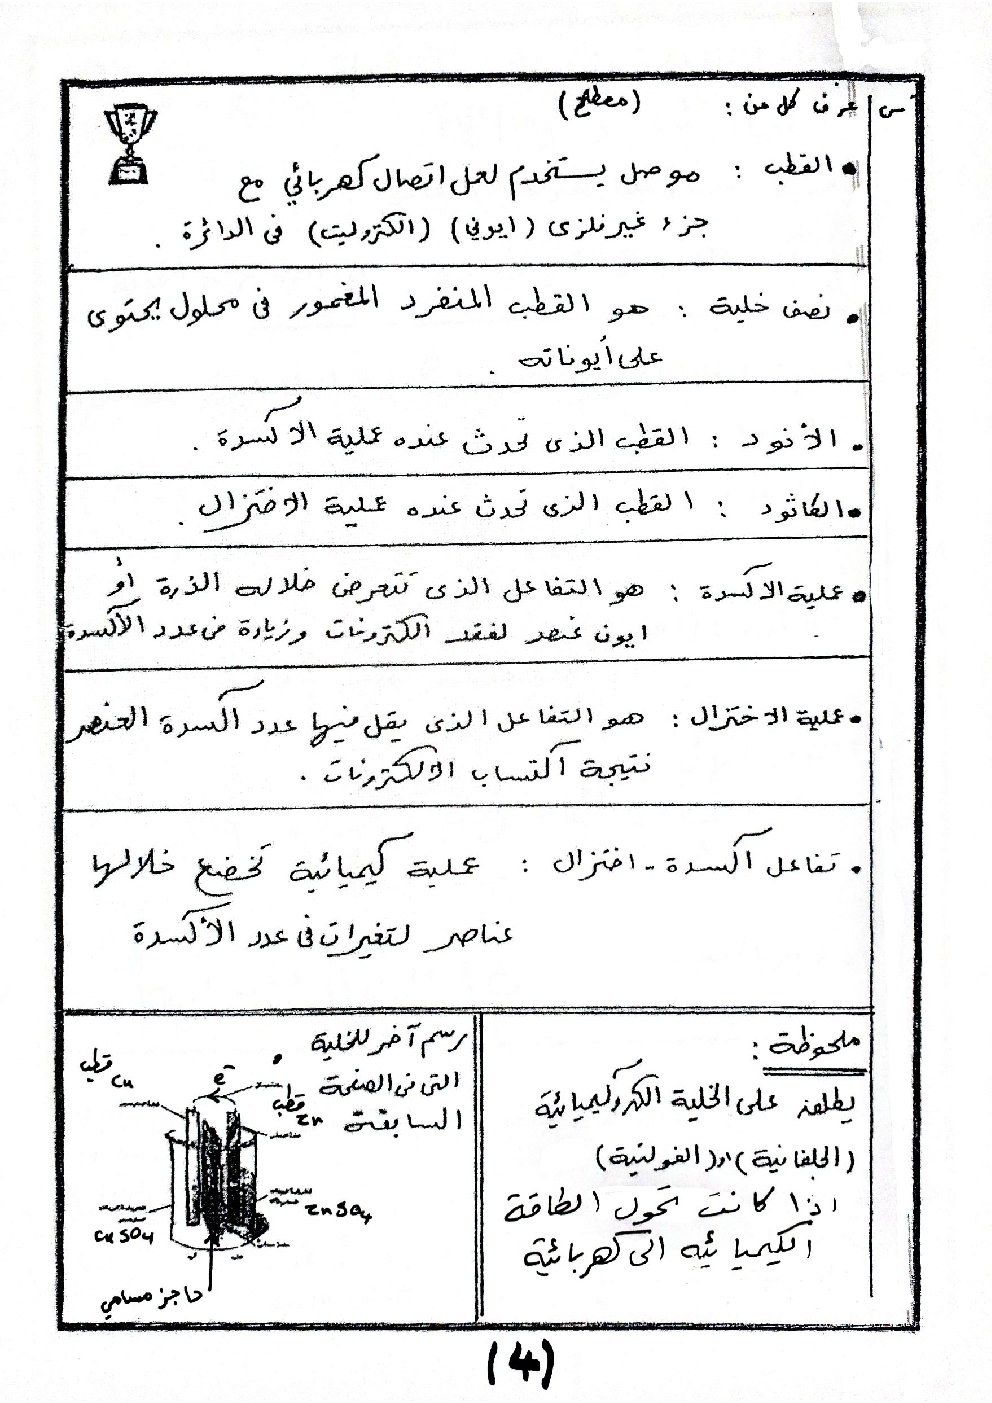 س/ عرف كل من : (مصطلح)
• القطب : موصل يستخدم لعمل اتصال كهربائي مع
جزء غير فلزى (ايوني) (الكتروليت) فى الدائرة .
• نصف خلية : هو القطب المنفرد المغمور فى محلول يحتوى
على أيوناته .
• الأنود : القطب الذى تحدث عنده عملية الاكسدة .
• الكاثود : القطب الذى تحدث عنده عملية الاختزال .
• عملية الاكسدة : هو التفاعل الذى تتعرض خلاله الذرة أو
ايون عنصر لفقد الكترونات وزيادة فى عدد الأكسدة
• عملية الاختزال : هو التفاعل الذى يقل فيها عدد أكسدة العنصر
نتيجة اكتساب الالكترونات .
• تفاعل أكسدة - اختزال : عملية كيميائية تخضع خلالها
عناصر لتغيرات فى عدد الأكسدة
ملحوظة :
يطلق على الخلية الكهروكيميائية
(الجلفانية) او (الفولتية)
اذا كانت تحول الطاقة
الكيميائيه الى كهربائية
• رسم آخر للخلية
التى فى الصفحة
السابقة
قطب
Cu
e⁻
قطب
Zn
ZnSO4
CuSO4
حاجز مسامي
(4)